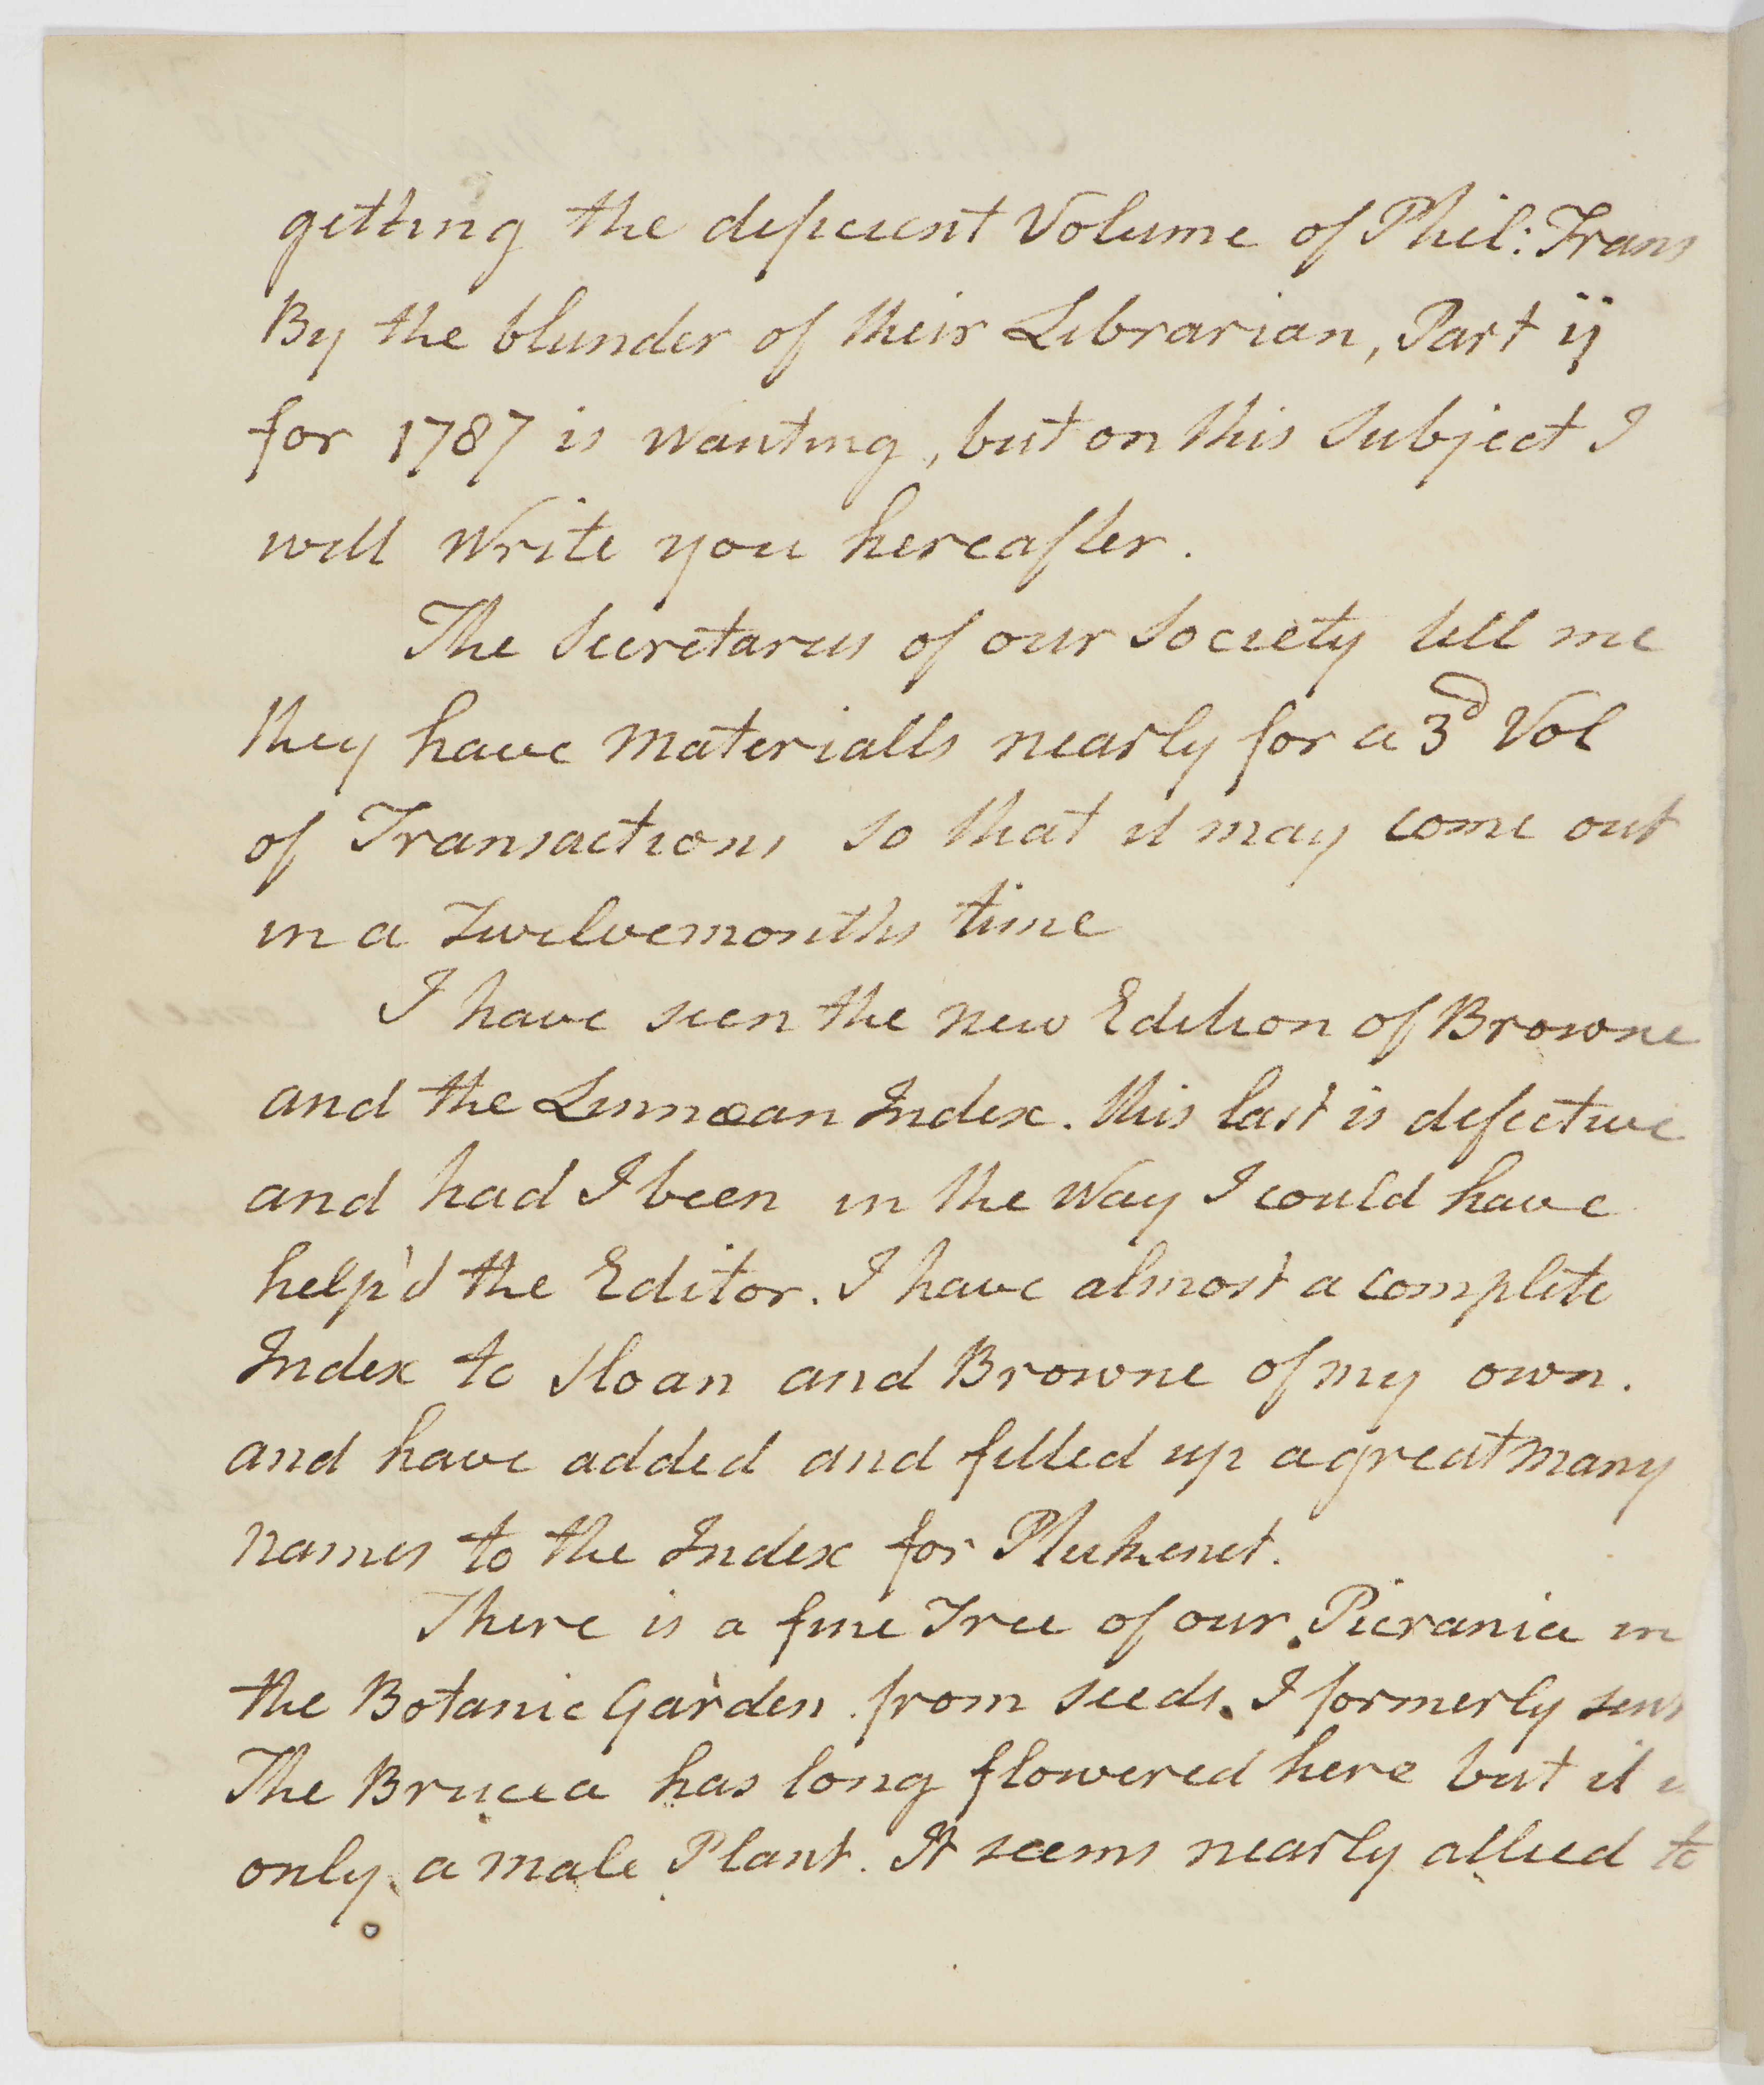 getting the deficient Volume of Phil: Trans
By the blunder of their Librarian, Part ij
for 1787 is wanting, but on this Subject I
will write you hereafter.
The Secretaries of our Society tell me
they have materialls nearly for a 3d Vol
of Transactions so that it may come out
in a Twelvemonths time
I have seen the new Edition of Browne
and the Linnæan Index. this last is defective
and had I been in the Way I could have
help'd the Editor. I have almost a complete
Index to Sloan and Browne of my own.
and have added and filled up a great many
names to the Index for Plukenet.
There is a fine Tree of our Picrania in
the Botanic Garden from seeds I formerly sent
The Brucea has long flowered here but it
only a male Plant. It seems nearly allied to